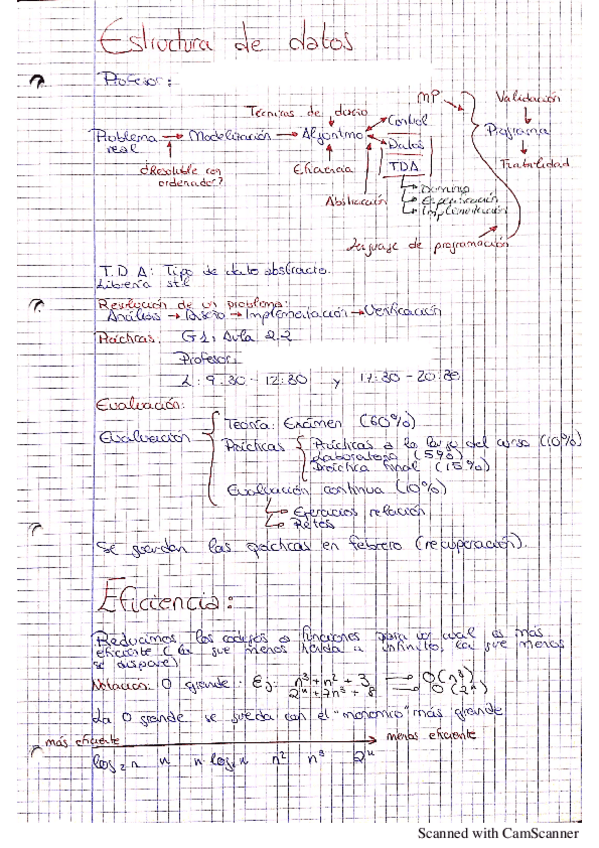 Estructura de datos
Profesor:
Técnicas de diseño
MP
Validación
Problema real → Modelización → Algoritmo
Control
Datos
TDA
Programa
Trabilidad
¿Resoluble con ordenador?
Eficiencia
Abstracción
Dominio
Especificación
Implementación
Lenguaje de programación
T.D.A: Tipo de dato abstracto.
Librería stl
Resolución de un problema:
Análisis → Diseño → Implementación → Verificación
Prácticas. G1, Aula 2.2
Profesor:
L: 9:30 - 12:30 y 17:30 - 20:30
Evaluación:
Evaluación
Teoría: Exámen (60%)
Prácticas
Prácticas a lo largo del curso (10%)
Laboratorio (5%)
Práctica final (15%)
Evaluación continua (10%)
Ejercicios relación
Retos
Se guardan las prácticas en febrero (recuperación).
Eficiencia:
Reducimos los códigos a funciones para ver cual es más
eficiente (la que menos tienda a infinito, la que menos
se dispare)
Notación: O grande. Ej: n³+n²+3 → O(n³)
2ⁿ+7n³+8 → O(2ⁿ)
La O grande se queda con el "monomio" más grande
más eficiente
menos eficiente
log₂n n n log₂n n² n³ 2ⁿ
Scanned with CamScanner